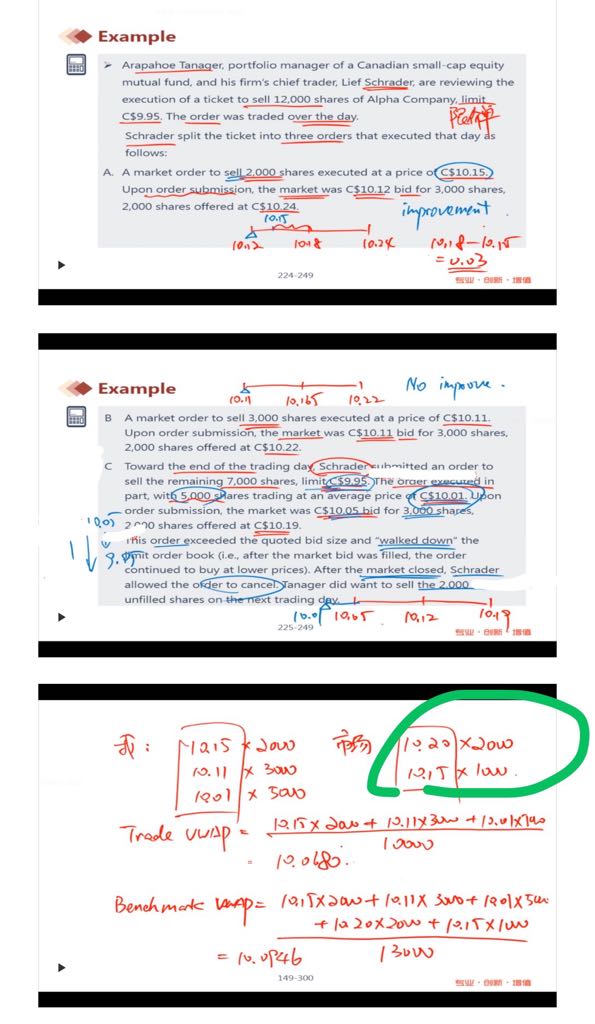 Example
➢ Arapahoe Tanager, portfolio manager of a Canadian small-cap equity
mutual fund, and his firm's chief trader, Lief Schrader, are reviewing the
execution of a ticket to sell 12,000 shares of Alpha Company, limit
C$9.95. The order was traded over the day.
限价单
Schrader split the ticket into three orders that executed that day as
follows:
A. A market order to sell 2,000 shares executed at a price of C$10.15.
Upon order submission, the market was C$10.12 bid for 3,000 shares,
2,000 shares offered at C$10.24.
improvement.
10.15
10.12 10.18 10.24
10.18-10.15
= 0.03
224-249
专业·创新·增值
Example
No improve.
10.11 10.165 10.22
B A market order to sell 3,000 shares executed at a price of C$10.11.
Upon order submission, the market was C$10.11 bid for 3,000 shares,
2,000 shares offered at C$10.22.
C Toward the end of the trading day, Schrader submitted an order to
sell the remaining 7,000 shares, limit C$9.95. The order executed in
part, with 5,000 shares trading at an average price of C$10.01. Upon
order submission, the market was C$10.05 bid for 3,000 shares,
2,000 shares offered at C$10.19.
This order exceeded the quoted bid size and "walked down" the
limit order book (i.e., after the market bid was filled, the order
continued to buy at lower prices). After the market closed, Schrader
allowed the order to cancel. Tanager did want to sell the 2,000
unfilled shares on the next trading day.
10.05
9.95
10.01 10.05 10.12 10.19
225-249
专业·创新·增值
我: 10.15 × 2000 市场 10.20 × 2000
10.11 × 3000 10.15 × 1000.
10.01 × 5000
Trade VWAP = 10.15×2000+10.11×3000+10.01×
10000
= 10.0680.
Benchmark VWAP = 10.15×2000+10.11×3000+10.01×5000
+10.20×2000+10.15×1000
13000
= 10.0946
149-300
专业·创新·增值